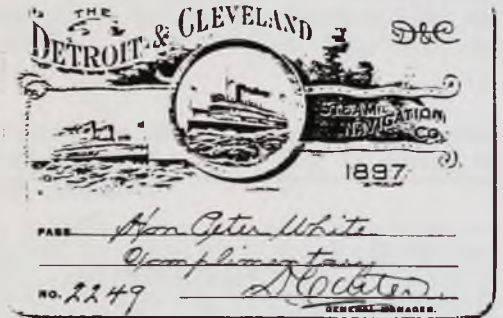 THE
DETROIT & CLEVELAND
D&C
STEAM NAVIGATION CO.
1897
PASS Hon Peter White
Complimentary
NO. 2249
GENERAL MANAGER.